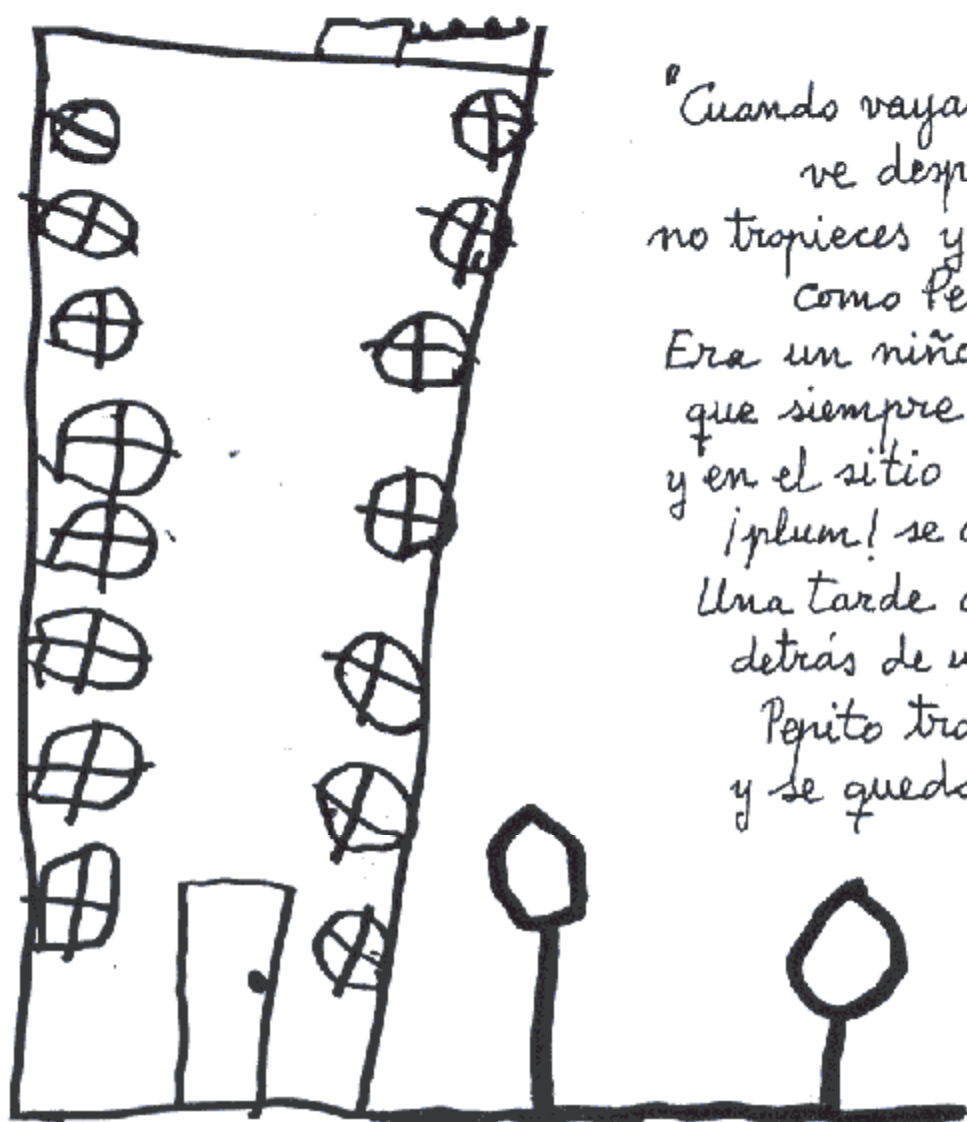 "Cuando vaya
ve desp
no tropieces y
como Pe
Era un niño
que siempre
y en el sitio
¡plum! se c
Una tarde
detrás de u
Pepito tro
y se qued